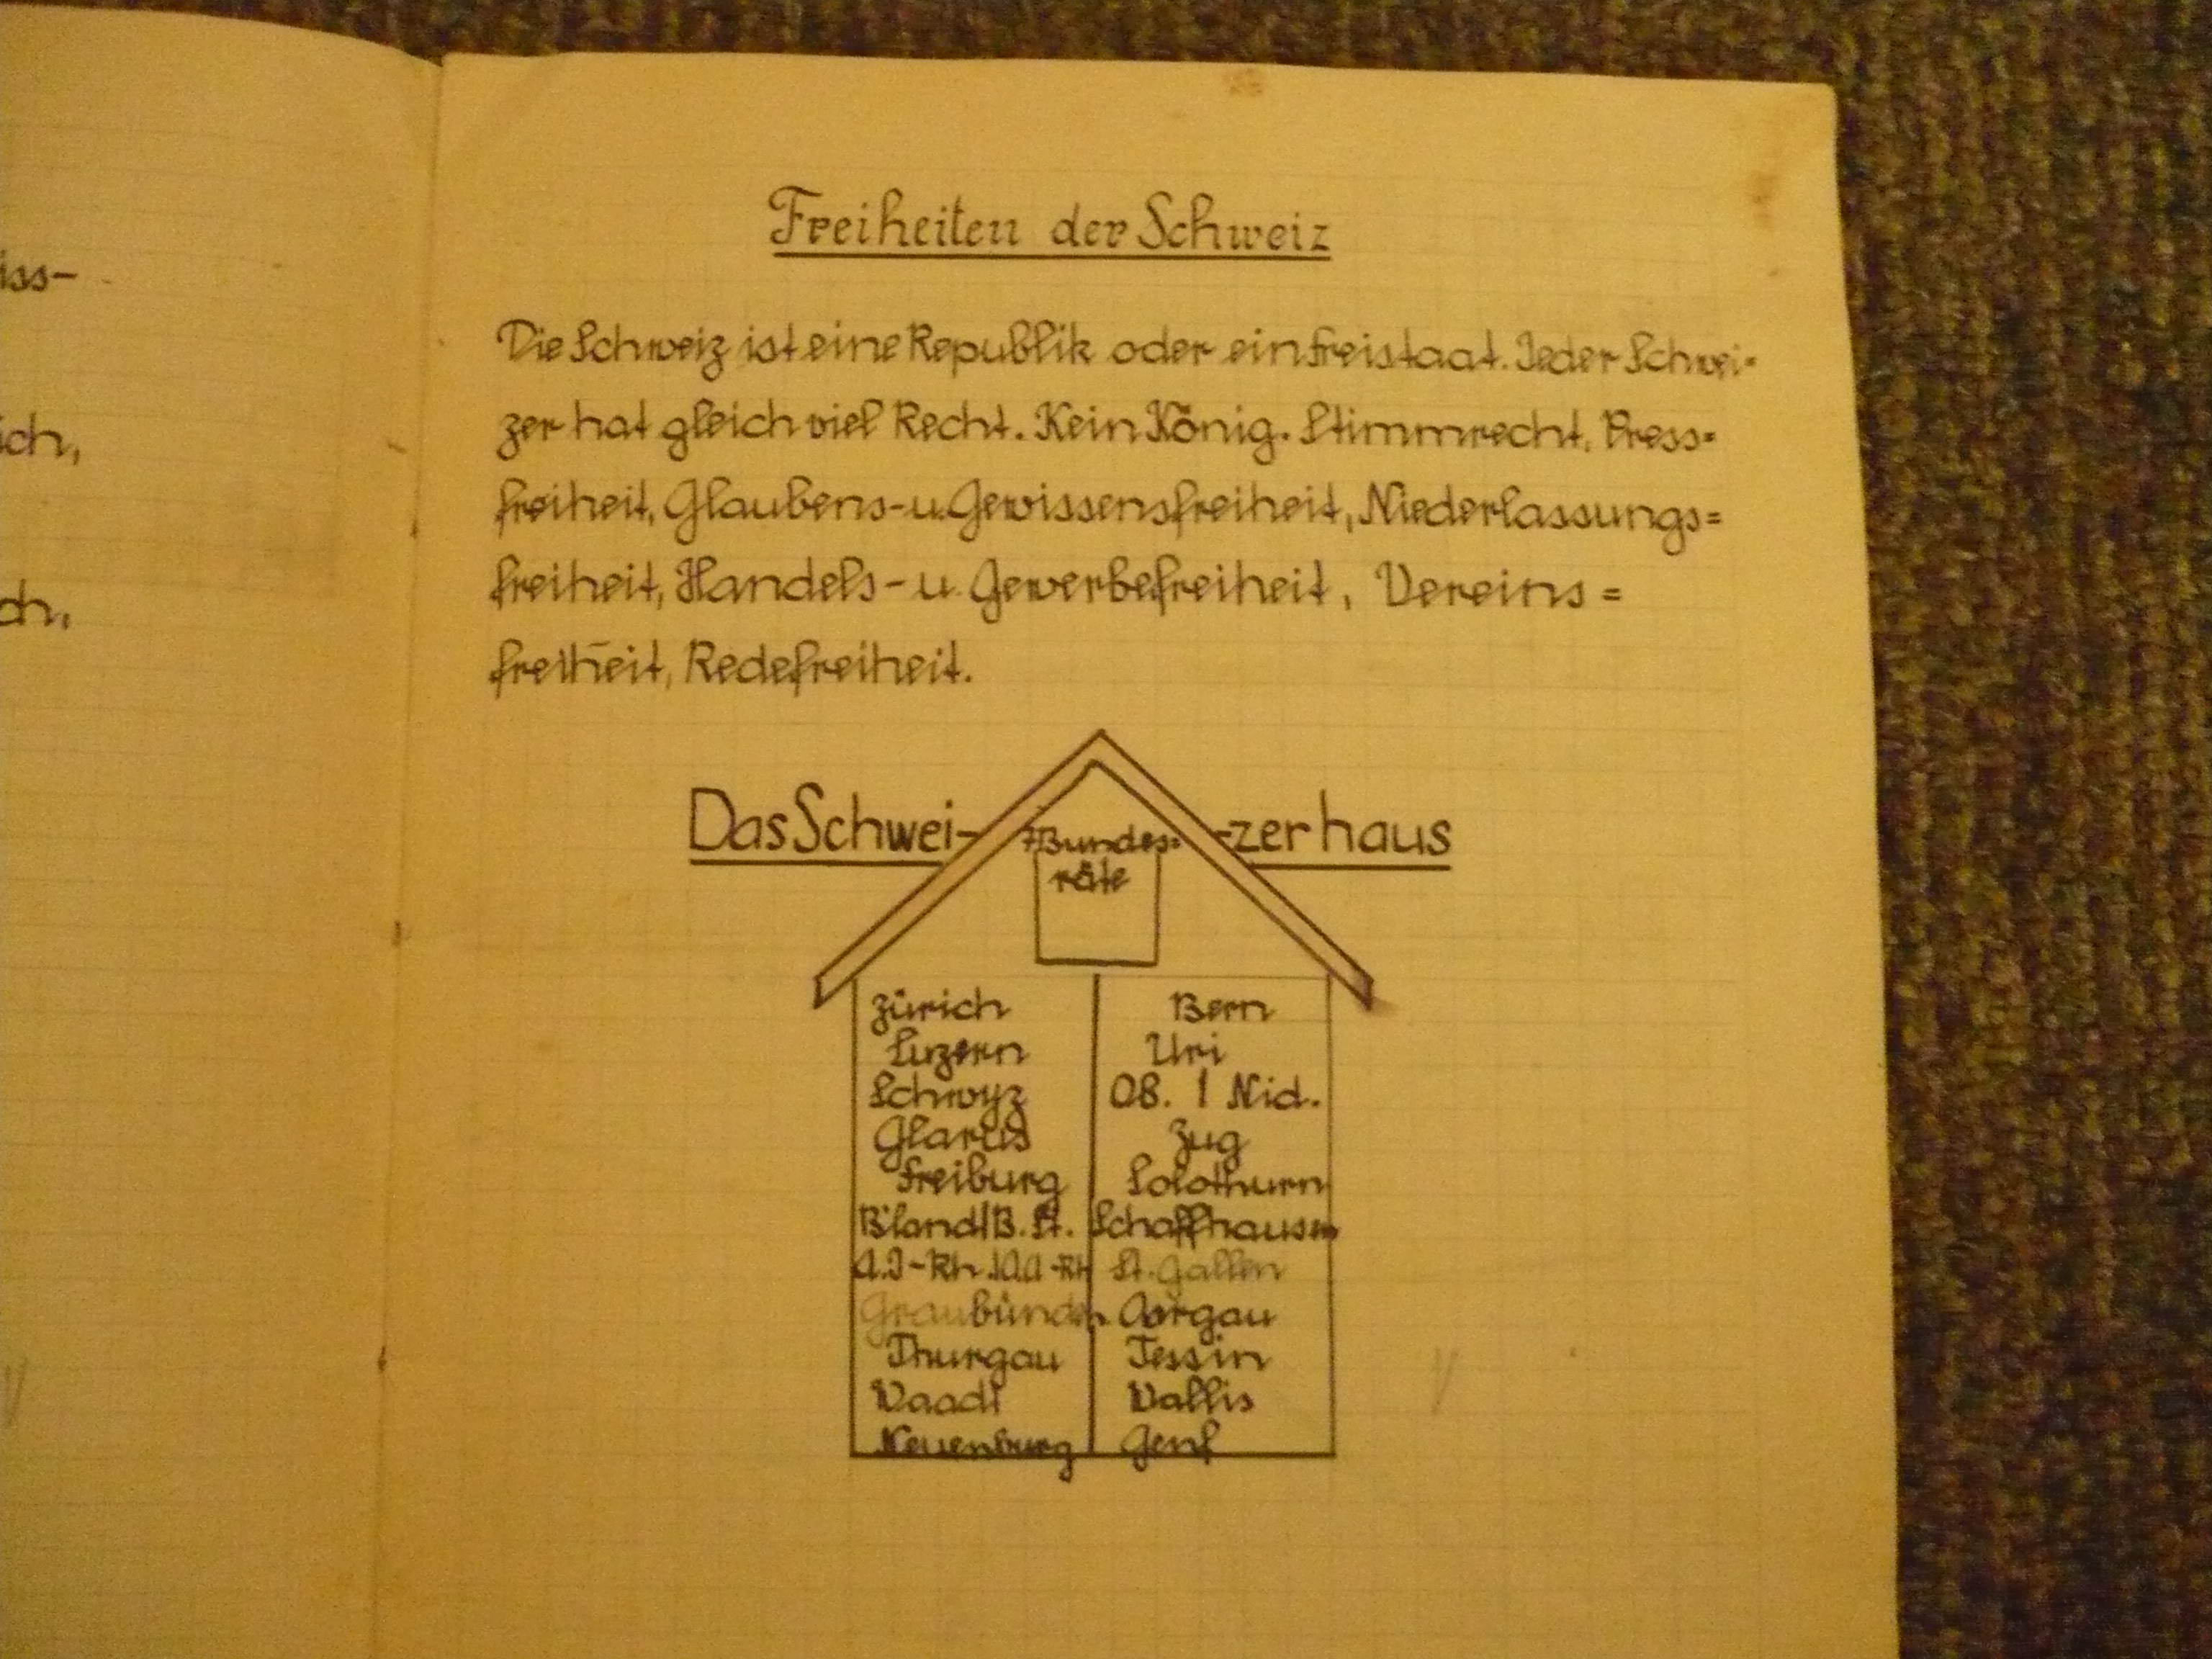 iss-
ich,
ch,
Freiheiten der Schweiz
Die Schweiz ist eine Republik oder ein Freistaat. Jeder Schwei=
zer hat gleich viel Recht. Kein König. Stimmrecht, Press=
freiheit, Glaubens- u. Gewissensfreiheit, Niederlassungs=
freiheit, Handels- u. Gewerbefreiheit, Vereins=
freiheit, Redefreiheit.
Das Schwei- -zerhaus
7 Bundes=
räte
Zürich Bern
Luzern Uri
Schwyz OB. | Nid.
Glarus Zug
Freiburg Solothurn
B'land|B. St. Schaffhausen
A.I-Rh.|A.A-Rh St. Gallen
Graubünden Aargau
Thurgau Tessin
Waadt Wallis
Neuenburg Genf